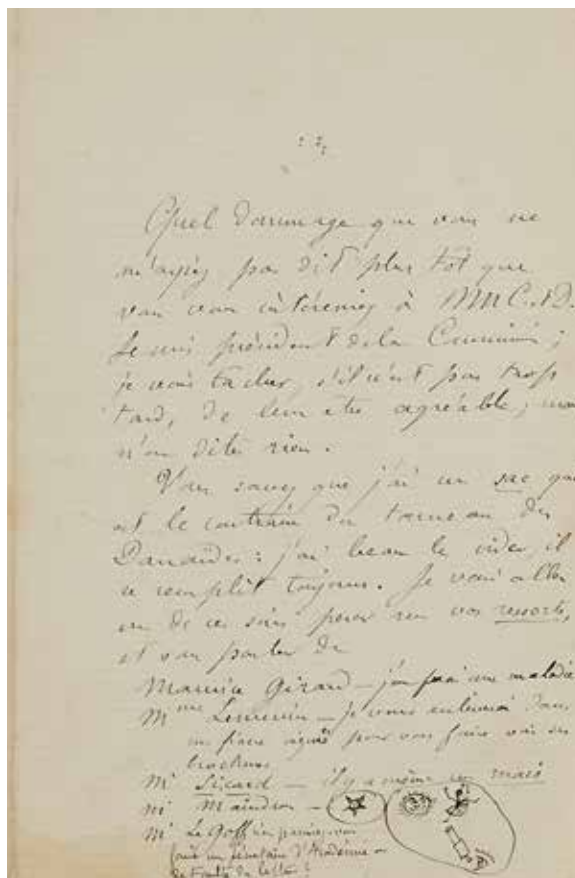 Quel dommage que vous ne
m'ayiez pas dit plus tôt que
vous vous intéressiez à MM C. et D.
Je suis président de la Commission ;
je vais tacher, s'il n'est pas trop
tard, de leur être agréable ; mais
n'en dites rien.
Vous savez que j'ai un sac qui
est le contraire du tonneau des
Danaïdes : j'ai beau le vider, il
se remplit toujours. Je vais aller
un de ces soirs peser sur vos ressorts,
et vous parler de
Maurice Girard — j'en fais une maladie
Mme — je vous
un fiacre pour vous faire voir ses
brochures
Mr Sicard — il y a même un mais
Mr Maindron —
Mr Le Goff
faire un secrétaire d'Académie